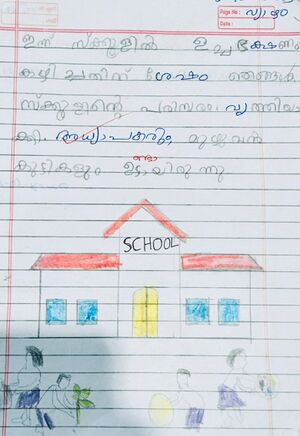 Page No: വ്യാഴം
Date:
ഇന്ന് സ്കൂളിൽ ഉച്ചഭക്ഷണം
കഴിച്ചതിന് ശേഷം ഞങ്ങൾ
സ്ക്കൂളിന്റെ പരിസരം വൃത്തിയാ
ക്കി. അധ്യാപകരും, മുഴുവൻ
കുട്ടികളും ഉണ്ടായിരുന്നു
SCHOOL